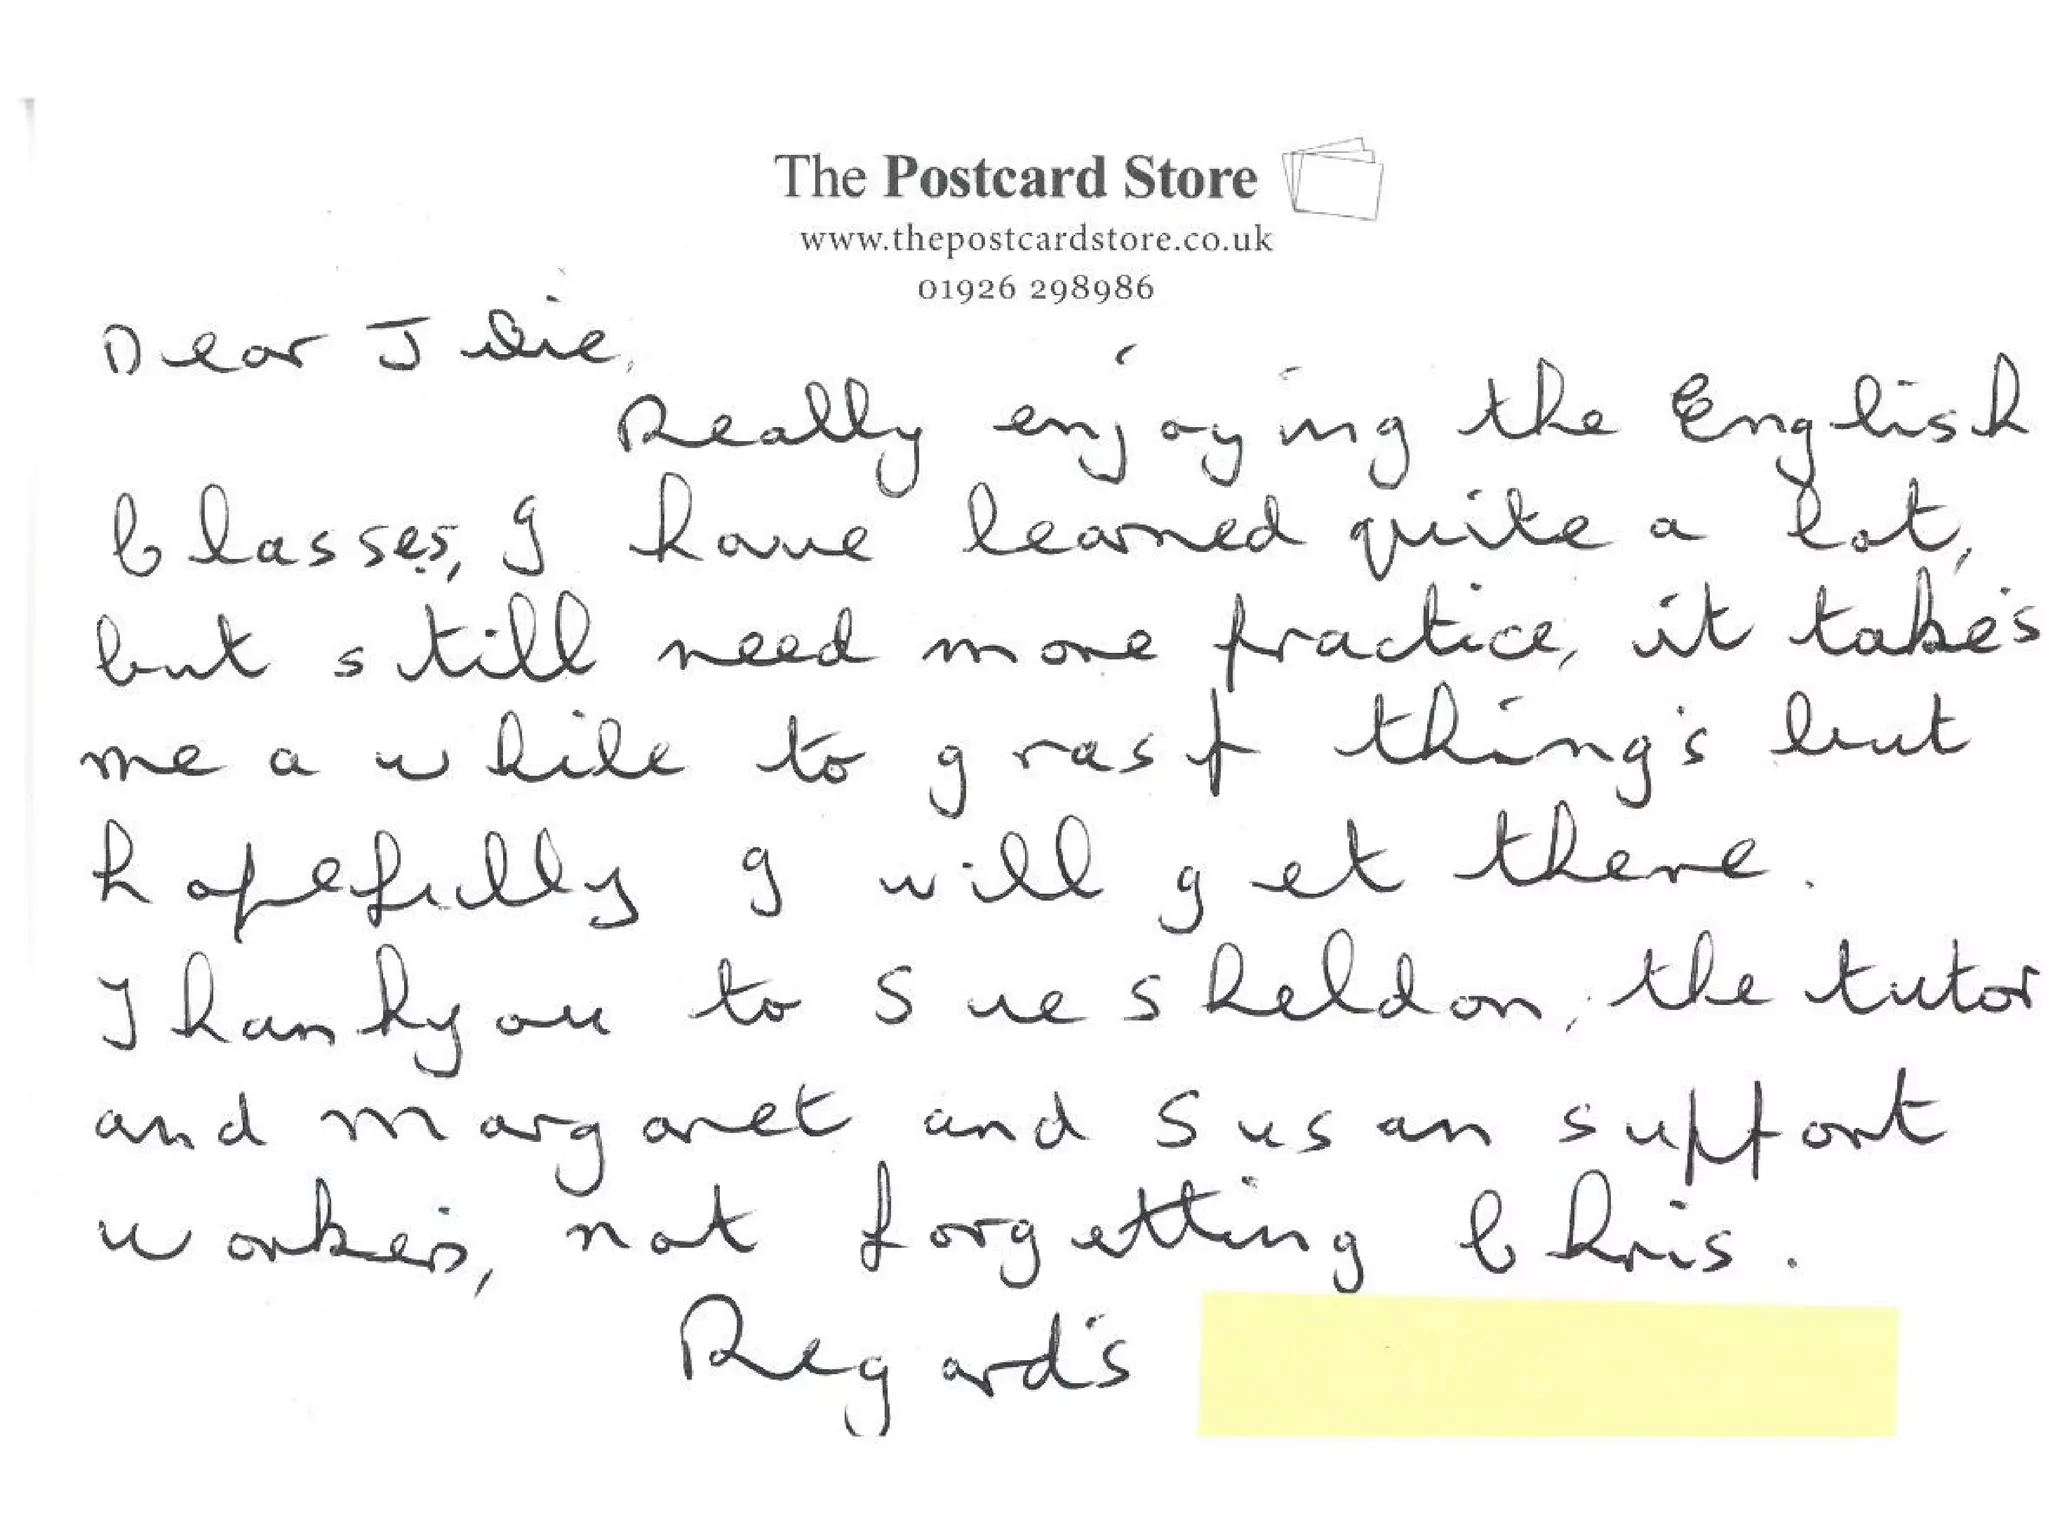 The Postcard Store
www.thepostcardstore.co.uk
01926 298986
Dear Julie,
Really enjoying the English
Classes, I have learned quite a lot,
but still need more practice, it take's
me a while to grasp thing's but
hopefully I will get there.
Thankyou to Sue Sheldon, the tutor
and Margaret and Susan support
worker's, not forgetting Chris.
Regard's